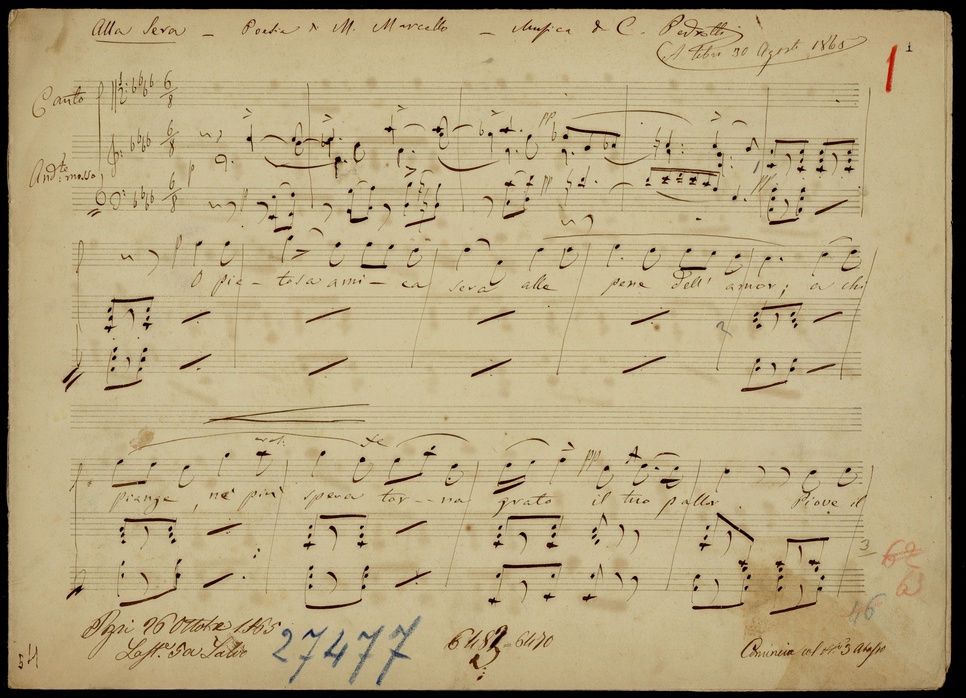 Alla Sera - Poesia di M. Marcello - Musica di C. Pedrotti
30 Agosto 1865
1
1
Canto
6/8
Andte mosso
6/8
p
pp
6/8
p
pp
pp
p
O pie - tosa ami - ca sera alle pene dell' amor; a chi
pp
piange, nè più spera tor - - na grato il tuo pallor Piove il
3
62
63
46
26 Ottobre 1865
27477
6482 - 6470
3
Comincia col No 3
54